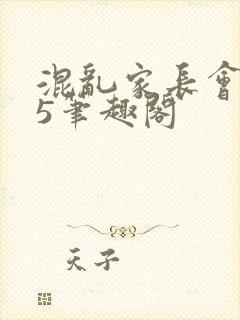 混亂家長會
5筆趣閣
天子